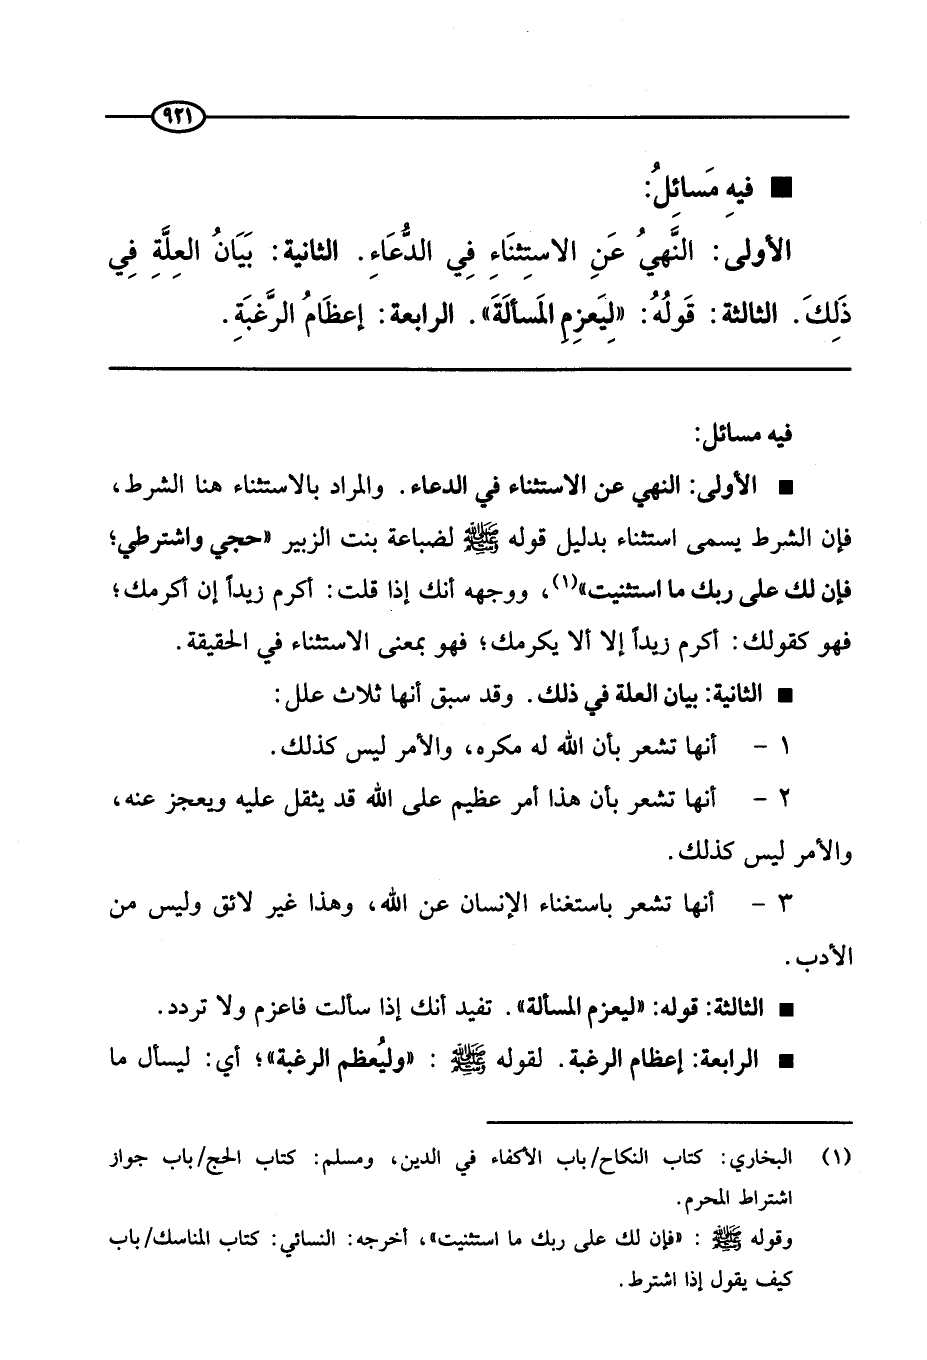 ٩٢١
■ فِيهِ مَسَائِلُ:
الأولى: النَّهيُ عَنِ الاستِثنَاءِ فِي الدُّعَاءِ. الثانية: بَيَانُ العِلَّةِ فِي
ذَلِكَ. الثالثة: قَولُهُ: «لِيَعزِمِ المَسألَةَ». الرابعة: إعظَامُ الرَّغبَةِ.
فيه مسائل:
■ الأولى: النهي عن الاستثناء في الدعاء. والمراد بالاستثناء هنا الشرط،
فإن الشرط يسمى استثناء بدليل قوله ﷺ لضباعة بنت الزبير «حجي واشترطي؛
فإن لك على ربك ما استثنيت»(١)، ووجهه أنك إذا قلت: أكرم زيداً إن أكرمك؛
فهو كقولك: أكرم زيداً إلا ألا يكرمك؛ فهو بمعنى الاستثناء في الحقيقة.
■ الثانية: بيان العلة في ذلك. وقد سبق أنها ثلاث علل:
١ - أنها تشعر بأن الله له مكره، والأمر ليس كذلك.
٢ - أنها تشعر بأن هذا أمر عظيم على الله قد يثقل عليه ويعجز عنه،
والأمر ليس كذلك.
٣ - أنها تشعر باستغناء الإنسان عن الله، وهذا غير لائق وليس من
الأدب.
■ الثالثة: قوله: «ليعزم المسألة». تفيد أنك إذا سألت فاعزم ولا تردد.
■ الرابعة: إعظام الرغبة. لقوله ﷺ : «وليُعظم الرغبة»؛ أي: ليسأل ما
(١) البخاري: كتاب النكاح/باب الأكفاء في الدين، ومسلم: كتاب الحج/باب جواز
اشتراط المحرم.
وقوله ﷺ : «فإن لك على ربك ما استثنيت»، أخرجه: النسائي: كتاب المناسك/باب
كيف يقول إذا اشترط.